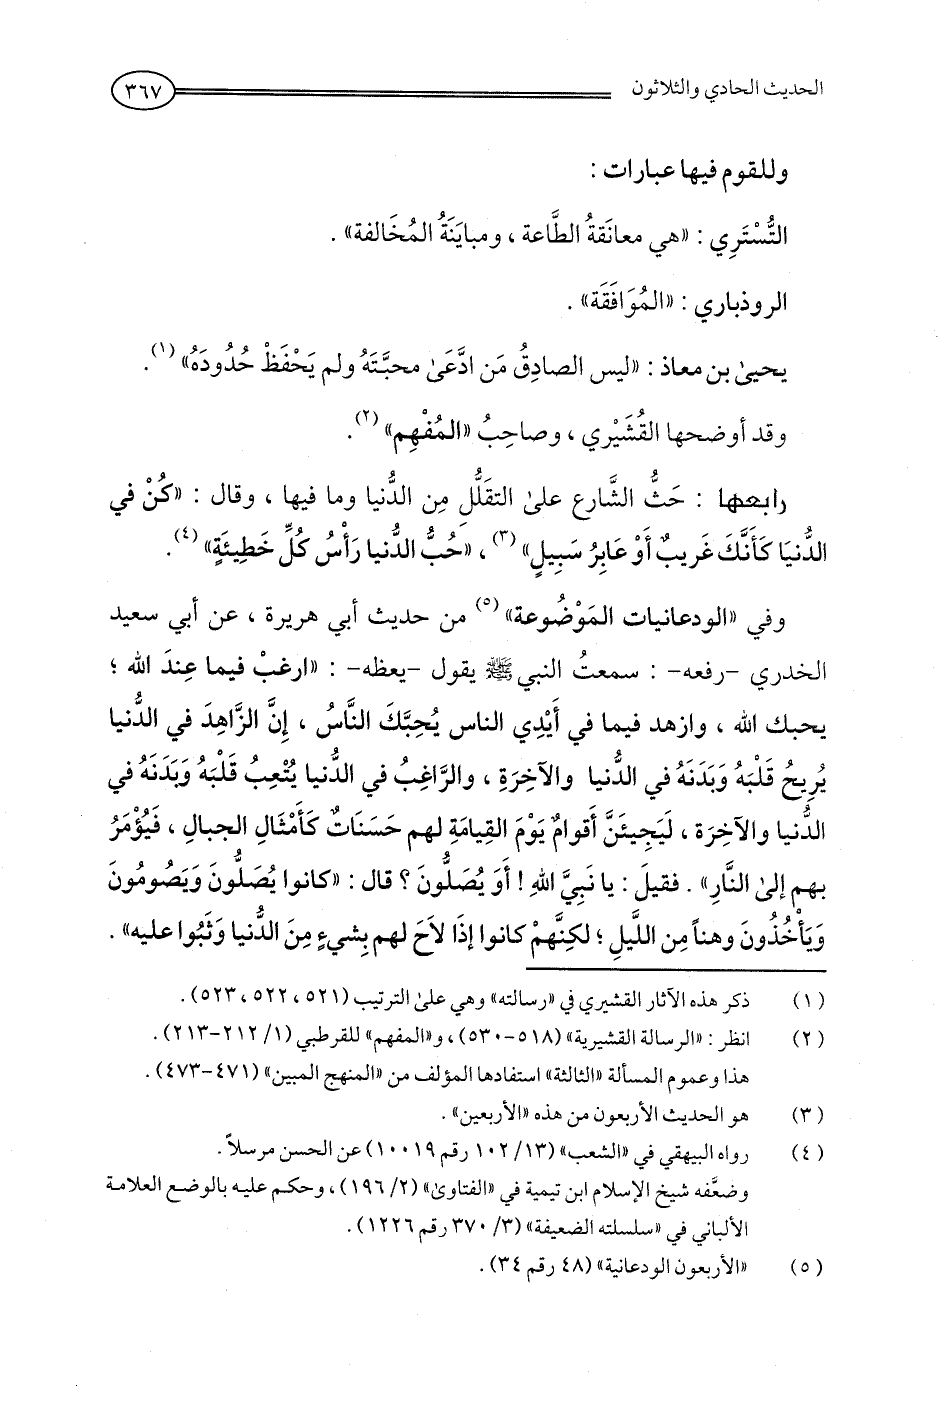 الحديث الحادي والثلاثون ٣٦٧
وللقوم فيها عبارات :
التُّسْتَرِي : «هي معانَقةُ الطَّاعة ، ومبايَنَةُ المُخَالفة» .
الروذباري : «المُوَافَقَة» .
يحيىٰ بن معاذ : «ليس الصادِقُ مَن ادَّعَىٰ محبَّتَهُ ولم يَحْفَظْ حُدُودَهُ» (١).
وقد أوضحها القُشَيْري ، وصاحِبُ «المُفْهِم» (٢).
رابعها : حَثُّ الشَّارع علىٰ التقَلُّلِ مِن الدُّنيا وما فيها ، وقال : «كُنْ في
الدُّنيَا كَأَنَّكَ غَرِيبٌ أَوْ عَابِرُ سَبِيلٍ» (٣) ، «حُبُّ الدُّنيا رَأْسُ كُلِّ خَطِيئَةٍ» (٤).
وفي «الودعانيات المَوْضُوعة» (٥) من حديث أبي هريرة ، عن أبي سعيد
الخدري -رفعه- : سمعتُ النبي ﷺ يقول -يعظه- : «ارغبْ فيما عِندَ الله ؛
يحبك الله ، وازهد فيما في أَيْدِي الناس يُحِبَّكَ النَّاسُ ، إنَّ الزَّاهِدَ في الدُّنيا
يُرِيحُ قَلْبَهُ وَبَدَنَهُ في الدُّنيا والآخِرَةِ ، والرَّاغِبُ في الدُّنيا يُتْعِبُ قَلْبَهُ وَبَدَنَهُ في
الدُّنيا والآخِرَة ، لَيَجِيئَنَّ أقوامٌ يَوْمَ القِيامَةِ لهم حَسَنَاتٌ كَأَمْثَالِ الجبال ، فَيُؤْمَرُ
بهم إلىٰ النَّارِ» . فقيلَ : يا نبيَّ اللهِ ! أَوَ يُصَلُّونَ ؟ قال : «كانوا يُصَلُّونَ وَيَصُومُونَ
وَيَأْخُذُونَ وهناً مِن اللَّيلِ ؛ لكِنَّهمْ كانوا إذَا لاَحَ لهم بِشيءٍ مِنَ الدُّنيا وَثَبُوا عليه» .
(١) ذكر هذه الآثار القشيري في «رسالته» وهي علىٰ الترتيب (٥٢١، ٥٢٢، ٥٢٣) .
(٢) انظر : «الرسالة القشيرية» (٥١٨-٥٣٠) ، و«المفهم» للقرطبي (١/ ٢١٢-٢١٣) .
هذا وعموم المسألة «الثالثة» استفادها المؤلف من «المنهج المبين» (٤٧١-٤٧٣) .
(٣) هو الحديث الأربعون من هذه «الأربعين» .
(٤) رواه البيهقي في «الشعب» (١٣/ ١٠٢ رقم ١٠٠١٩) عن الحسن مرسلاً .
وضعَّفه شيخ الإسلام ابن تيمية في «الفتاوىٰ» (٢/ ١٩٦) ، وحكم عليه بالوضع العلامة
الألباني في «سلسلته الضعيفة» (٣/ ٣٧٠ رقم ١٢٢٦) .
(٥) «الأربعون الودعانية» (٤٨ رقم ٣٤) .